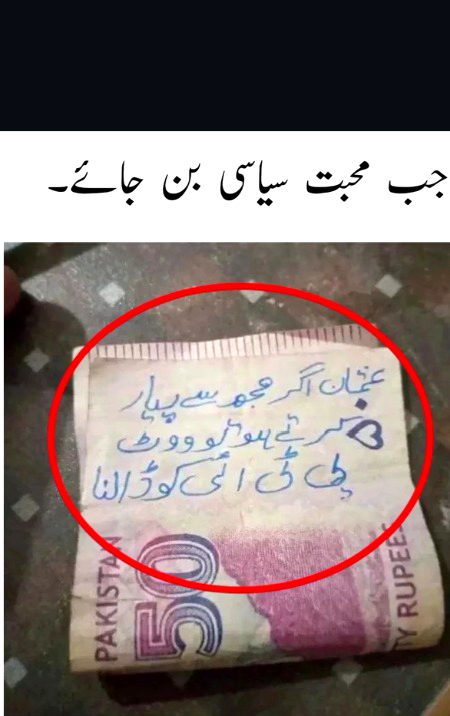 جب محبت سیاسی بن جائے۔
عثمان اگر مجھ سے پیار
کرتے ہو تو ووٹ
پی ٹی آئی کو ڈالنا
PAKISTAN
50
TY RUPEES